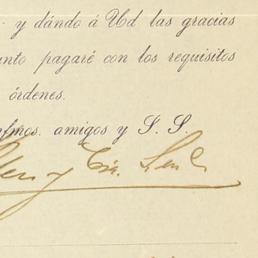 y dándo á Ud las gracias
pagaré con los requisitos
órdenes.
amigos y S. S.
y Cía.